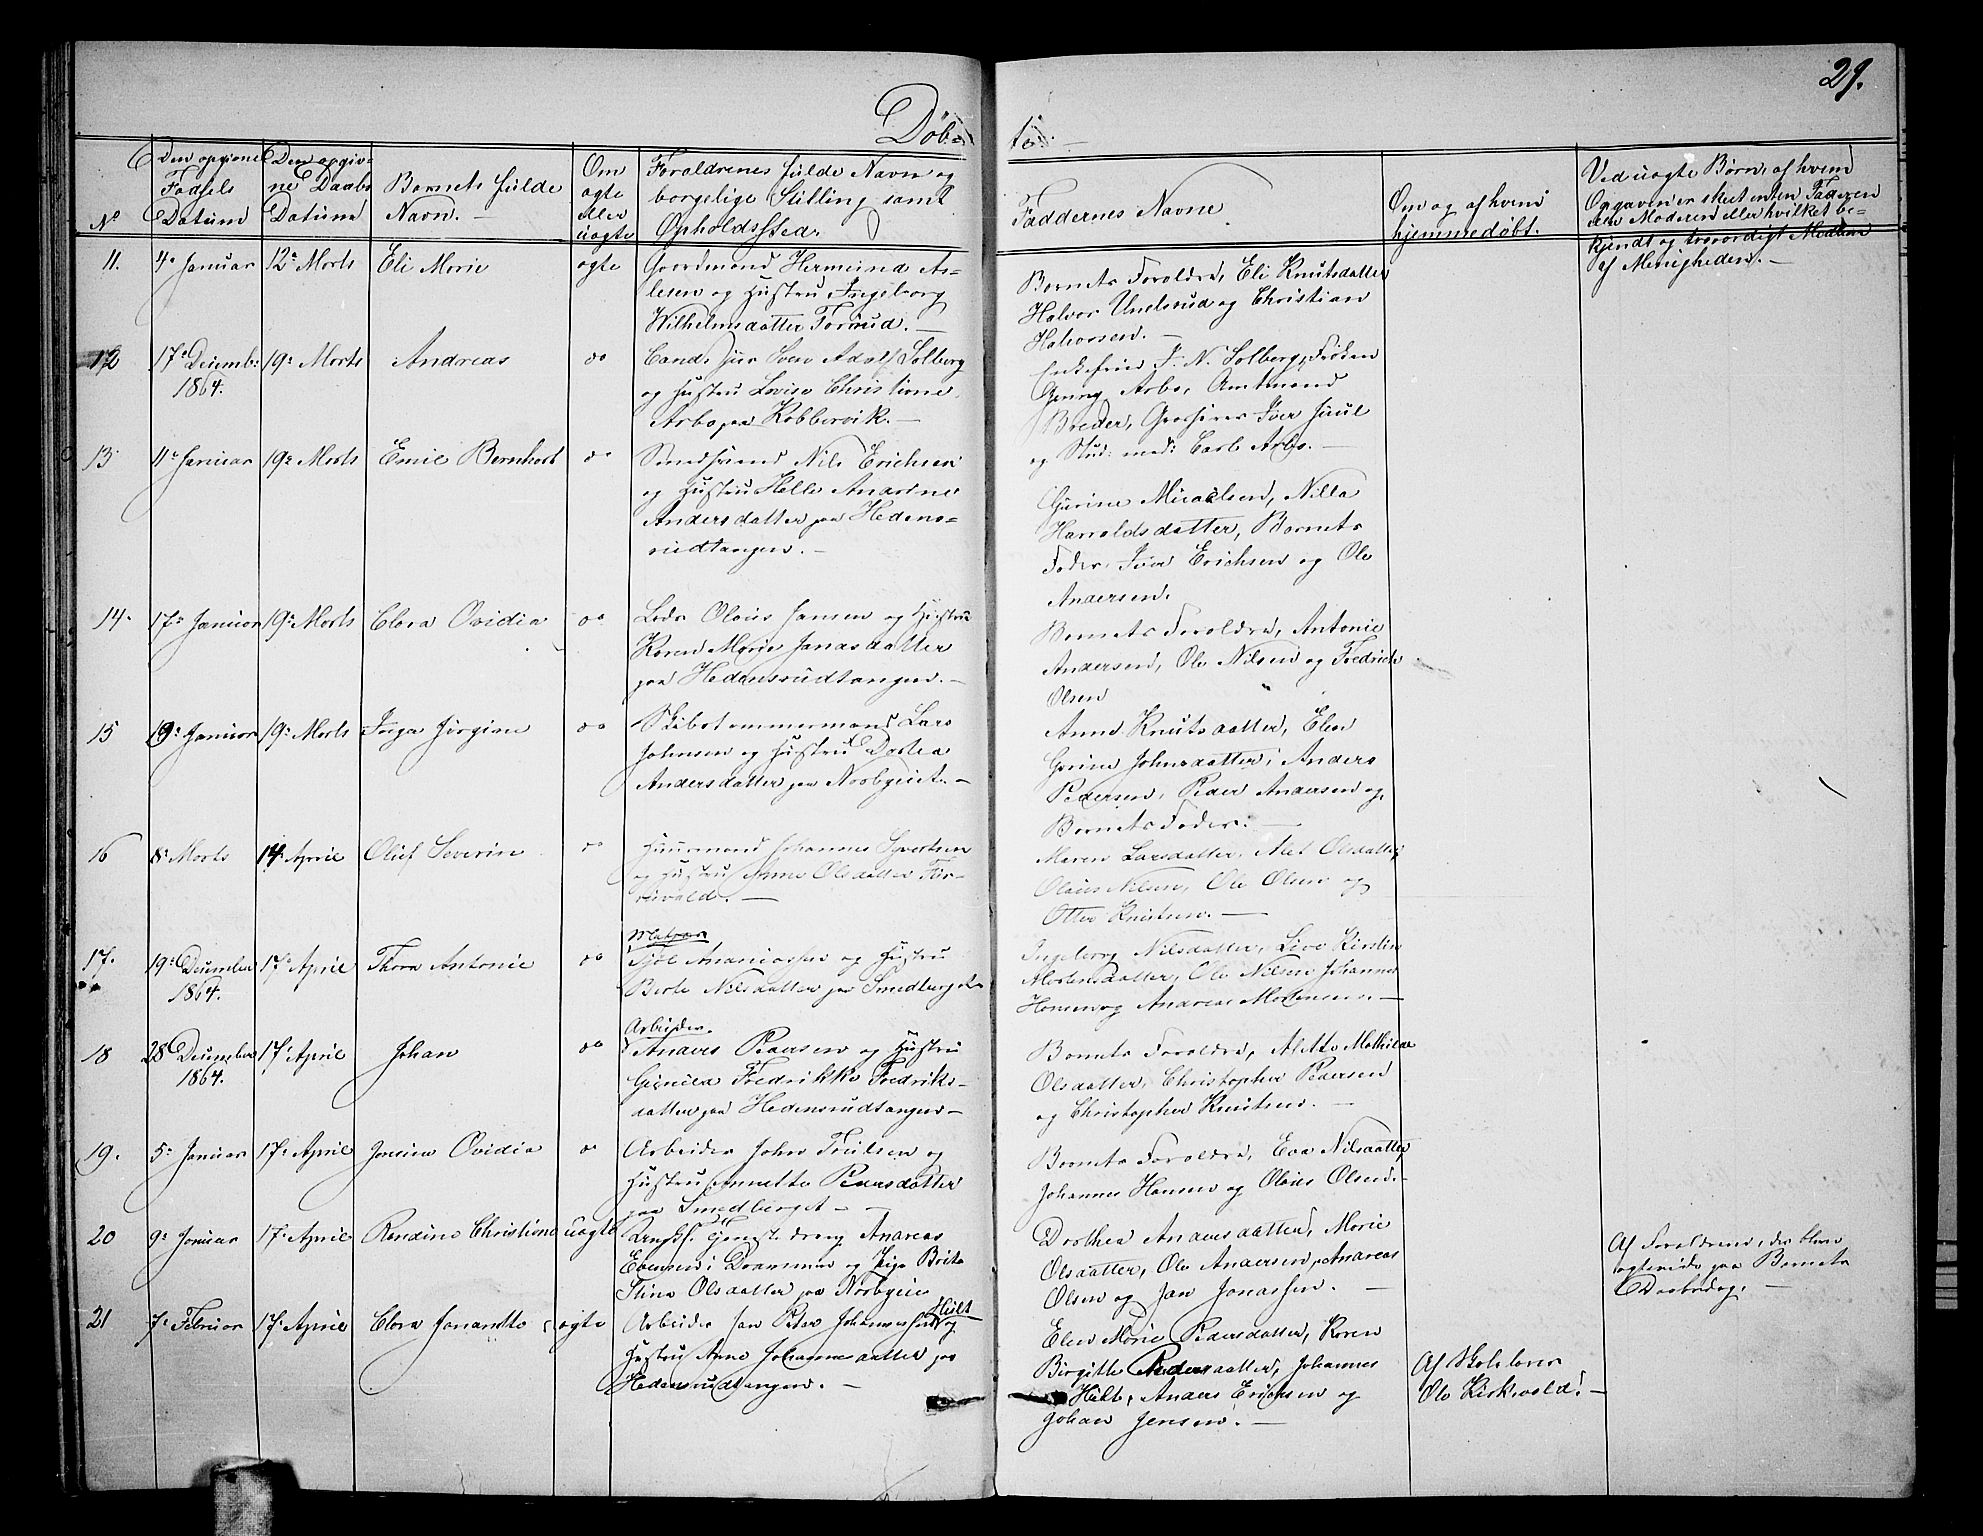 29.
Døb-
te.
No
Den opgivne Fødsels Datum
Den opgivne Daabs Datum
Barnets fulde Navn.
Om ægte eller uægte
Forældrenes fulde Navn og borgelige Stilling samt Opholdssted.
Faddernes Navne
Om og af hvem hjemmedøbt.
Ved uægte Børn, af hvem Opgaven er skeet enten Faderen eller Moderen eller hvilket bekjendt og troværdigt Medlem af Menigheden.
11. 4e Januar 12e Marts Eli Marie ægte
Gaardmand Hermeind As-
lesen og Hustru Ingeborg
Wilhelmsdatter Forrud.
Barnets Forældre, Eli Knutsdatter
Halvor Unelsrud og Christian
Halvorsen.
12 17e Decemb: 19e Marts Andreas do
1864.
Cand. jur Sven Adolf Solberg
og Hustru Lovise Christiane
Arbo paa Kobbervik.
Enkefrue J. N. Solberg, Frøken
Genny Arbo, Amtmand
Breder, Grosserer Iver Juul
og Stud: med: Carl Arbo.
13 11e Januar 19e Marts Emil Bernhart do
Smedsvend Nils Erichsen
og Hustru Helle Anarine
Andersdatter paa Hedens-
rudtangen.
Gurine Micaelsen, Nilla
Harraldsdatter, Barnets
Fader, Iver Erichsen og Ole
Andersen.
14. 17e Januar 19e Marts Clara Ovidia do
Lods Olaus Jansen og Hustru
Karen Marie Jonasdatter
paa Hedensrudtangen.
Barnets Forældre, Antonie
Andersen, Ole Nilsen og Fredrich
Olsen
15 19e Januar 19e Marts Inga Jørgine do
Skibstømmermand Lars
Johnsen og Hustru Dortea
Andersdatter paa Norbyeiet.
Anne Knutsdatter, Elen
Gurine Johnsdatter, Anders
Pedersen, Peder Andersen og
Barnets Fader.
16 8e Marts 14e April Oluf Severin do
Huusmand Johannes Syvertsen
og Hustru Anne Olsdatter Fos-
ruvald.
Maren Larsdatter, Alet Olsdatter
Olaus Nilsen, Ole Olsen og
Otter Knutsen.
17. 19e December 17e April Thora Antonie do
1864.
Matros
Tjøl Ananiassen og Hustru
Berte Nilsdatter paa Smedberget
Ingeborg Nilsdatter, Live Kirstine
Mortensdatter, Ole Nilsen Johannes
Hansen og Andreas Mortensen.
18 28 December 17e April Johan do
1864.
Arbeider
Anders Pedersen og Hustru
Gunild Fredrikke Fredriks-
datter paa Hedensrudtangen
Barnets Forældre, Alette Mathilde
Olsdatter, Christopher Pedersen
og Christopher Knutsen.
19. 5e Januar 17e April Jonine Ovidia do
Arbeider John Trulsen og
Hustru Annette Pedersdatter
paa Smedberget
Barnets Forældre, Eva Nilsdatter
Johannes Hansen og Olaus Olsen.
20 9e Januar 17e April Randine Christiane uægte
Ungk: Tjenestedreng Andreas
Evensen i Drammen og Pige Brita
Stina Olsdatter paa Norbyeie
Dorthea Andersdatter, Marie
Olsdatter, Ole Andersen, Andreas
Olsen og Jan Jonassen.
Af Forældrene, der bleve
ægteviede paa Barnets
Daabsdag.
21 7e Februar 17e April Clara Janandte ægte
Arbeider Jan Peter Johannessen Hult og
Hustru Anne Johannesdatter paa
Hedensrudtangen.
Elen Marie Pedersdatter, Karen
Birgitte Pedersdatter, Johannes
Hult, Anders Erichsen og
Johan Jensen.
Af Skolelærer
Ole Kirkvold.